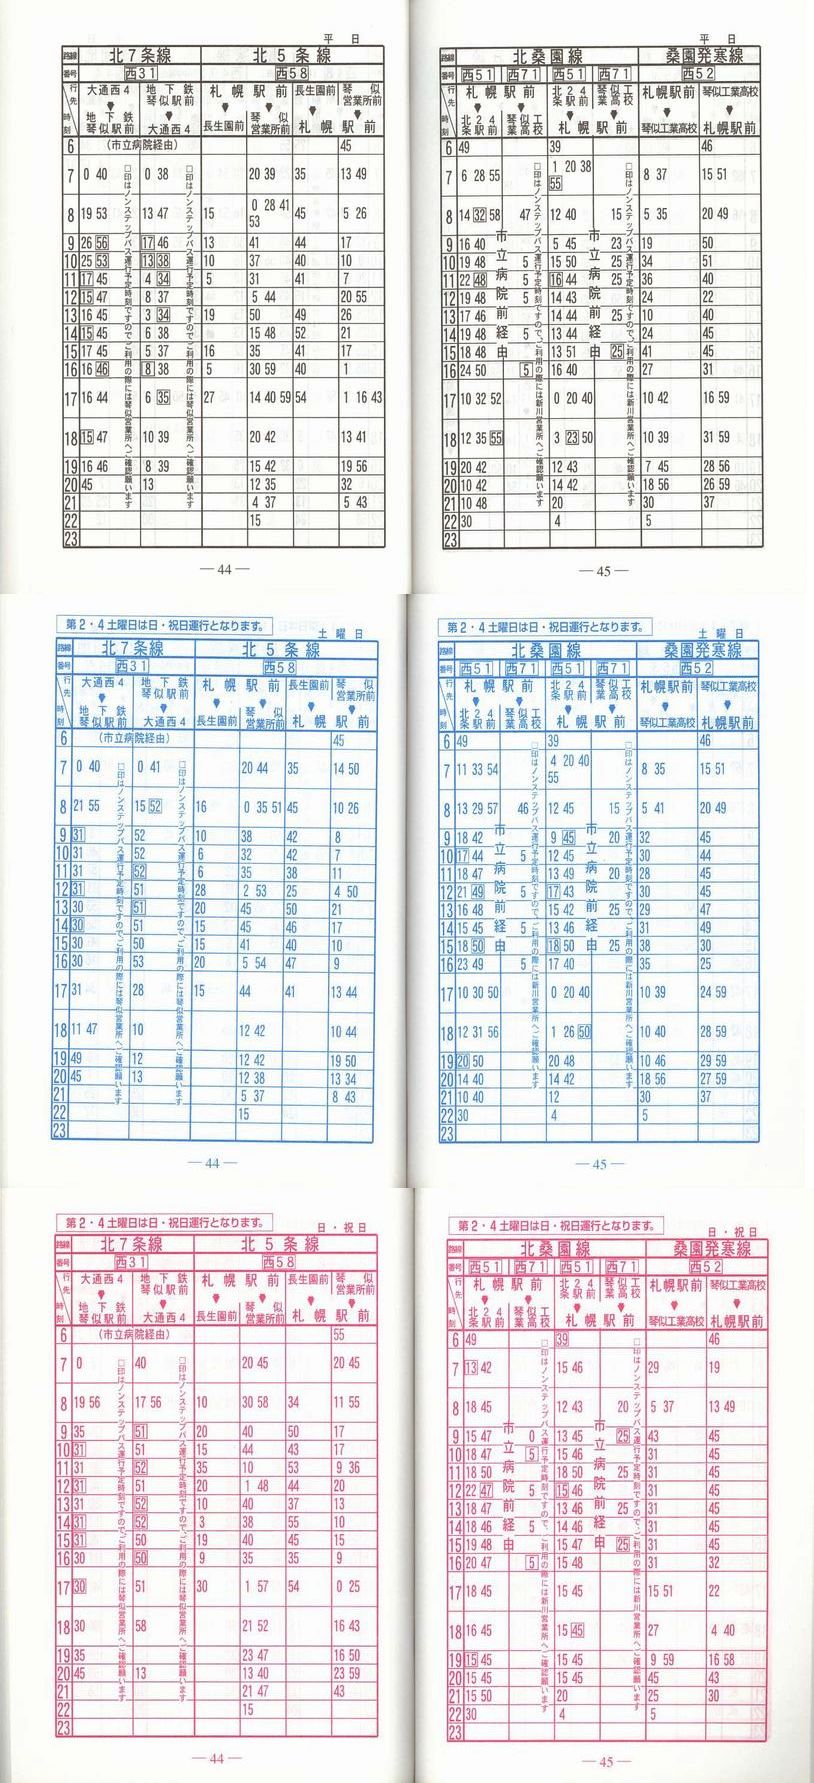 平日
路線 北7条線 北5条線
番号 西31 西58
行先 時刻
大通西4 ▼ 地下鉄琴似駅前
地下鉄琴似駅前 ▼ 大通西4
札幌駅前 ▼ 長生園前 琴似営業所前
長生園前 琴似営業所前 ▼ 札幌駅前
6 (市立病院経由) 45
7 0 40 0 38 20 39 35 13 49
8 19 53 13 47 15 0 28 41 53 45 5 26
9 26 56 17 46 13 41 44 17
10 25 53 13 38 10 37 40 10
11 17 45 4 34 5 31 41 7
12 15 47 8 37 5 44 20 55
13 16 45 3 34 19 50 49 26
14 15 45 6 38 15 48 52 21
15 17 45 5 37 16 35 41 17
16 16 46 8 38 5 30 59 40 1
17 16 44 6 35 27 14 40 59 54 1 16 43
18 15 47 10 39 20 42 13 41
19 16 46 8 39 15 42 19 56
20 45 13 12 35 32
21 4 37 5 43
22 15
23
□印はノンステップバス運行予定時刻ですので、ご利用の際には琴似営業所へご確認願います
□印はノンステップバス運行予定時刻ですので、ご利用の際には琴似営業所へご確認願います
— 44 —
平日
路線 北桑園線 桑園発寒線
番号 西51 西71 西51 西71 西52
行先 時刻
札幌駅前 ▼ 北24条駅前 琴似工業高校
北24条駅前 琴似工業高校 ▼ 札幌駅前
札幌駅前 ▼ 琴似工業高校
琴似工業高校 ▼ 札幌駅前
6 49 39 46
7 6 28 55 1 20 38 55 8 37 15 51
8 14 32 58 47 12 40 15 5 35 20 49
9 16 40 5 45 23 19 50
10 19 48 5 15 50 25 34 51
11 22 48 5 16 44 25 36 40
12 19 48 5 14 43 24 22
13 17 46 14 44 25 10 40
14 19 48 5 13 44 24 45
15 18 48 13 51 25 41 45
16 24 50 5 16 40 27 31
17 10 32 52 0 20 40 10 42 16 59
18 12 35 55 3 23 50 10 39 31 59
19 20 42 12 43 7 45 28 56
20 10 42 14 42 18 56 26 59
21 10 48 20 30 37
22 30 4 5
23
市立病院前経由
□印はノンステップバス運行予定時刻ですので、ご利用の際には新川営業所へご確認願います
市立病院前経由
□印はノンステップバス運行予定時刻ですので、ご利用の際には新川営業所へご確認願います
— 45 —
第2・4土曜日は日・祝日運行となります。
土曜日
路線 北7条線 北5条線
番号 西31 西58
行先 時刻
大通西4 ▼ 地下鉄琴似駅前
地下鉄琴似駅前 ▼ 大通西4
札幌駅前 ▼ 長生園前 琴似営業所前
長生園前 琴似営業所前 ▼ 札幌駅前
6 (市立病院経由) 45
7 0 40 0 41 20 44 35 14 50
8 21 55 15 52 16 0 35 51 45 10 26
9 31 52 10 38 42 8
10 31 52 6 32 42 7
11 31 52 6 35 38 11
12 31 51 28 2 53 25 4 50
13 30 51 20 45 50 21
14 30 51 15 45 46 17
15 30 50 15 41 40 10
16 30 53 20 5 54 47 9
17 31 28 15 44 41 13 44
18 11 47 10 12 42 10 44
19 49 12 12 42 19 50
20 45 13 12 38 13 34
21 5 37 8 43
22 15
23
□印はノンステップバス運行予定時刻ですので、ご利用の際には琴似営業所へご確認願います
□印はノンステップバス運行予定時刻ですので、ご利用の際には琴似営業所へご確認願います
— 44 —
第2・4土曜日は日・祝日運行となります。
土曜日
路線 北桑園線 桑園発寒線
番号 西51 西71 西51 西71 西52
行先 時刻
札幌駅前 ▼ 北24条駅前 琴似工業高校
北24条駅前 琴似工業高校 ▼ 札幌駅前
札幌駅前 ▼ 琴似工業高校
琴似工業高校 ▼ 札幌駅前
6 49 39 46
7 11 33 54 4 20 40 55 8 35 15 51
8 13 29 57 46 12 45 15 5 41 20 49
9 18 42 9 45 20 32 45
10 17 44 5 12 45 30 44
11 18 47 13 50 20 28 45
12 21 49 5 17 43 30 45
13 16 48 15 42 25 29 47
14 15 45 5 13 46 31 49
15 18 50 18 50 25 38 30
16 23 49 5 17 40 35 25
17 10 30 50 0 20 40 10 39 24 59
18 12 31 56 1 26 50 10 40 28 59
19 20 50 20 48 10 46 29 59
20 14 40 14 42 18 56 27 59
21 10 40 12 30 37
22 30 4 5
23
市立病院前経由
□印はノンステップバス運行予定時刻ですので、ご利用の際には新川営業所へご確認願います
市立病院前経由
□印はノンステップバス運行予定時刻ですので、ご利用の際には新川営業所へご確認願います
— 45 —
第2・4土曜日は日・祝日運行となります。
日・祝日
路線 北7条線 北5条線
番号 西31 西58
行先 時刻
大通西4 ▼ 地下鉄琴似駅前
地下鉄琴似駅前 ▼ 大通西4
札幌駅前 ▼ 長生園前 琴似営業所前
長生園前 琴似営業所前 ▼ 札幌駅前
6 (市立病院経由) 55
7 0 40 20 45 20 45
8 19 56 17 56 10 30 58 34 11 55
9 35 51 20 40 50 17
10 31 51 15 44 43 17
11 31 52 35 10 53 9 36
12 31 51 20 1 48 44 20
13 31 52 10 40 37 13
14 31 52 3 38 55 10
15 31 50 19 40 45 15
16 30 50 9 35 35 9
17 30 51 30 1 57 54 0 25
18 30 58 21 52 16 43
19 35 23 47 16 50
20 45 13 13 40 23 59
21 21 47 43
22 15
23
□印はノンステップバス運行予定時刻ですので、ご利用の際には琴似営業所へご確認願います
□印はノンステップバス運行予定時刻ですので、ご利用の際には琴似営業所へご確認願います
— 44 —
第2・4土曜日は日・祝日運行となります。
日・祝日
路線 北桑園線 桑園発寒線
番号 西51 西71 西51 西71 西52
行先 時刻
札幌駅前 ▼ 北24条駅前 琴似工業高校
北24条駅前 琴似工業高校 ▼ 札幌駅前
札幌駅前 ▼ 琴似工業高校
琴似工業高校 ▼ 札幌駅前
6 49 39 46
7 13 42 15 46 29 19
8 18 45 12 43 20 5 37 13 49
9 15 47 0 13 45 25 43 45
10 18 47 5 15 46 31 45
11 18 50 18 50 25 31 45
12 22 47 5 15 46 31 45
13 18 47 13 46 25 31 45
14 18 46 5 14 46 31 45
15 19 48 15 47 25 31 45
16 20 47 5 15 48 31 32
17 18 45 15 45 15 51 22
18 16 45 15 45 27 4 40
19 15 45 15 45 9 59 16 58
20 15 45 15 45 45 43
21 15 50 20 25 30
22 30 4 5
23
市立病院前経由
□印はノンステップバス運行予定時刻ですので、ご利用の際には新川営業所へご確認願います
市立病院前経由
□印はノンステップバス運行予定時刻ですので、ご利用の際には新川営業所へご確認願います
— 45 —